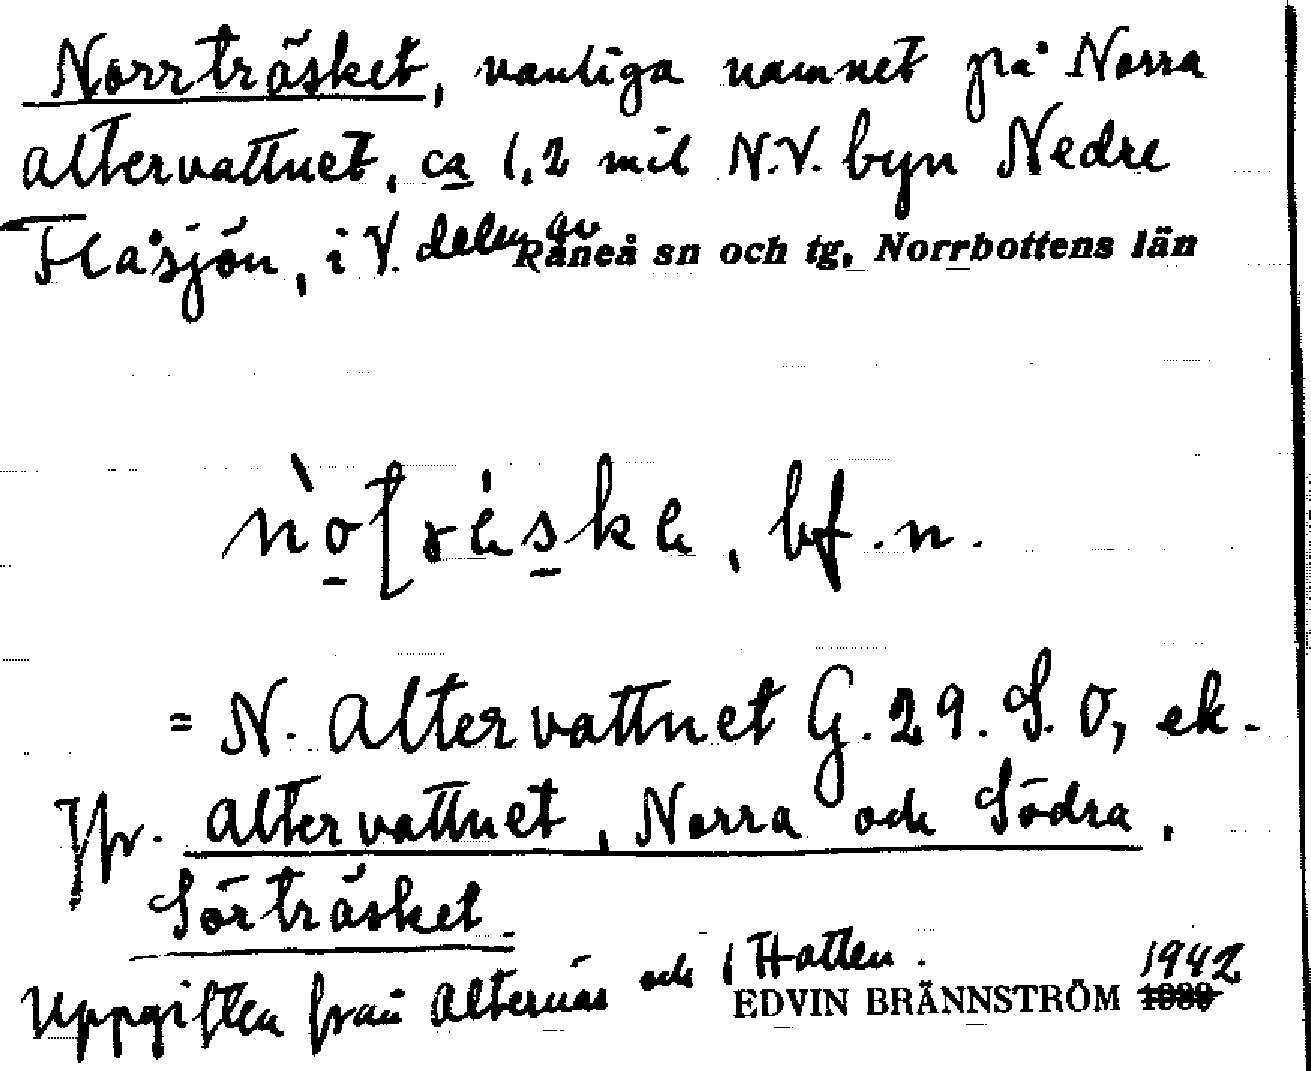 Norrträsket, vanliga namnet på Norra
Altervattnet, ca 1,2 mil N.V. byn Nedre
Flåsjön, i V. delen av Råneå sn och tg, Norrbottens län
bf. n.
= N. Altervattnet G. 29. S. O, ek.
Jfr. Altervattnet, Norra och Södra,
Sörträsket
Uppgiften från Alternäs och Hatten.
EDVIN BRÄNNSTRÖM 1942